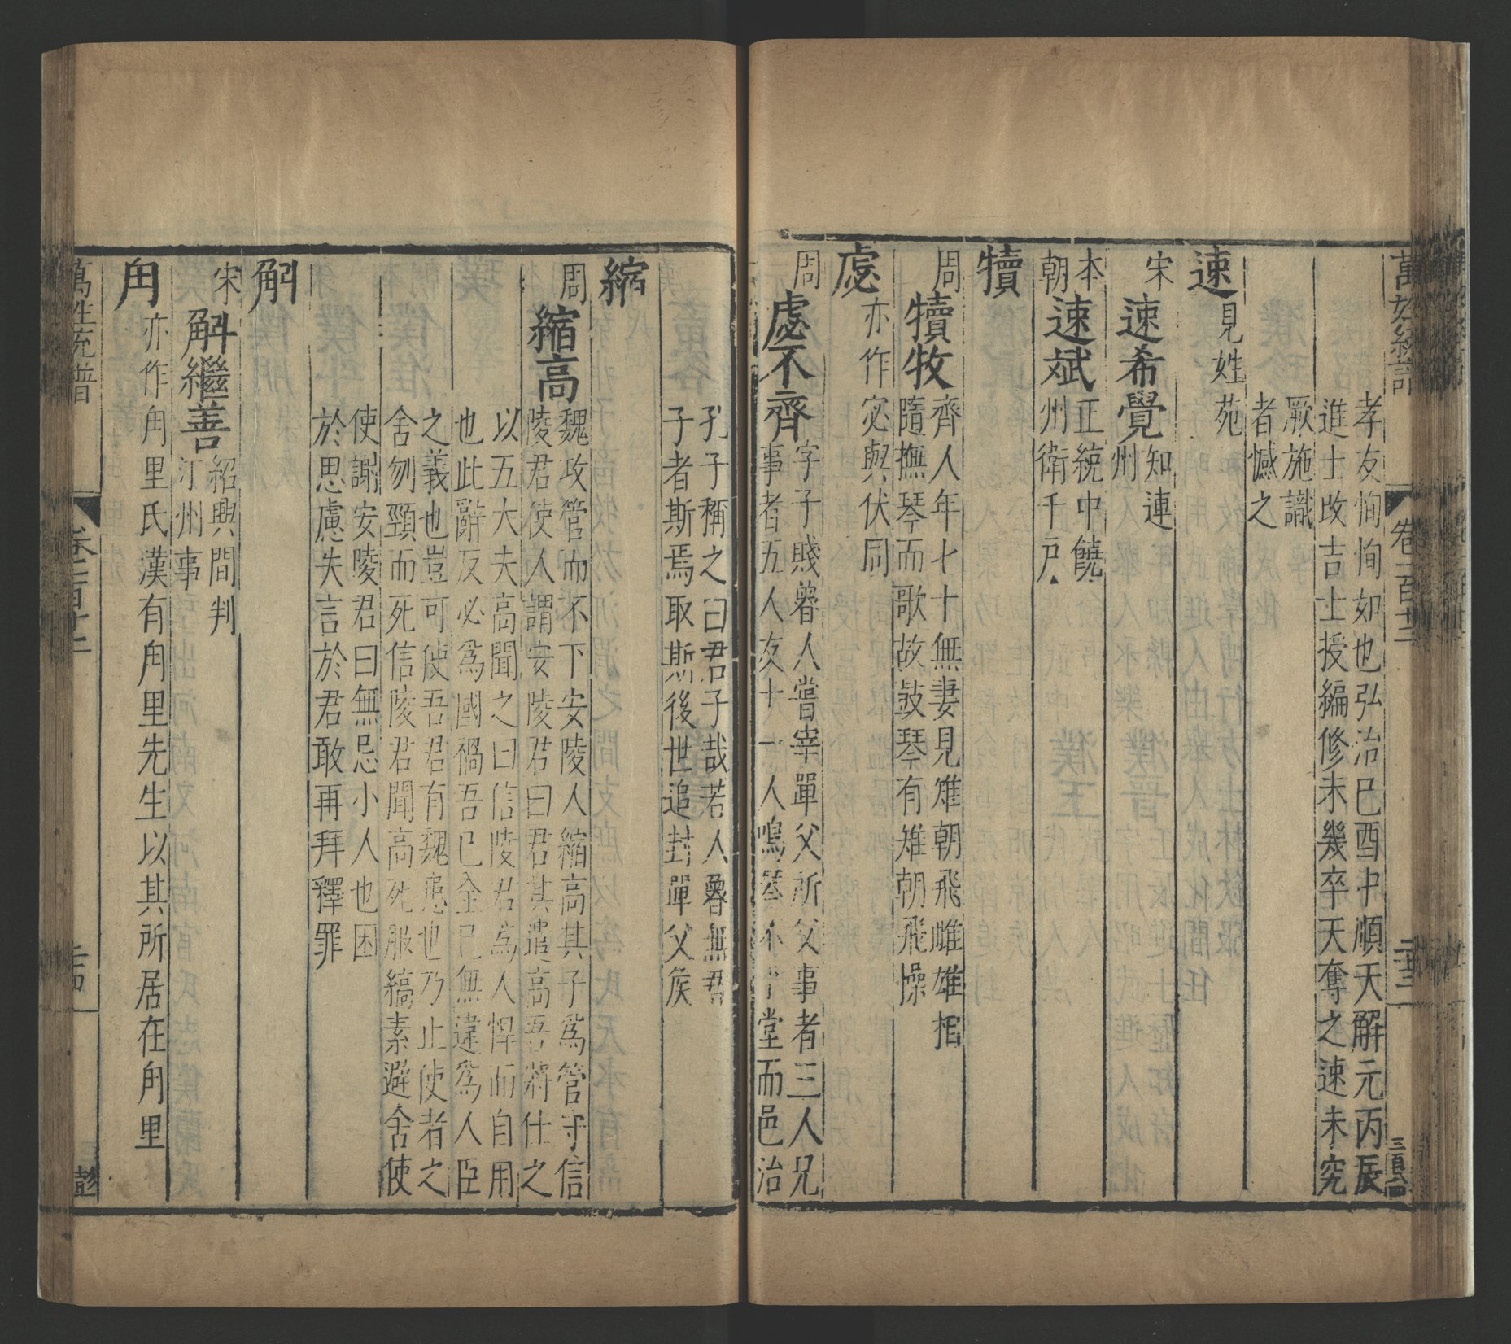 萬姓統譜 卷一百十二
孝友恂恂如也弘治己酉中順天解元丙辰
進士改吉士授編修未幾卒天奪之速未究
厥施識
者憾之
速 見姓苑
宋 速希覺 知連
州
本朝 速斌 正統中饒
州衛千戶
犢
周 犢牧 齊人年七十無妻見雉朝飛雌雄相
隨撫琴而歌故鼓琴有雉朝飛操
虙 亦作宓與伏同
周 虙不齊 字子賤魯人嘗宰單父所父事者三人兄
事者五人友十一人鳴琴不下堂而邑治
孔子稱之曰君子哉若人魯無君
子者斯焉取斯後世追封單父侯
縮
周 縮高 魏攻管而不下安陵人縮高其子為管守信
陵君使人謂安陵君曰君其遣高吾將仕之
以五大夫高聞之曰信陵君為人悍而自用
也此辭反必為國禍吾已全己無違為人臣
之義也豈可使吾君有魏患也乃止使者之
舍刎頸而死信陵君聞高死服縞素避舍使
使謝安陵君曰無忌小人也因
於思慮失言於君敢再拜釋罪
觓
宋 觓繼善 紹興間判
汀州事
角 亦作角里氏漢有角里先生以其所居在角里
萬姓統譜 卷一百十二